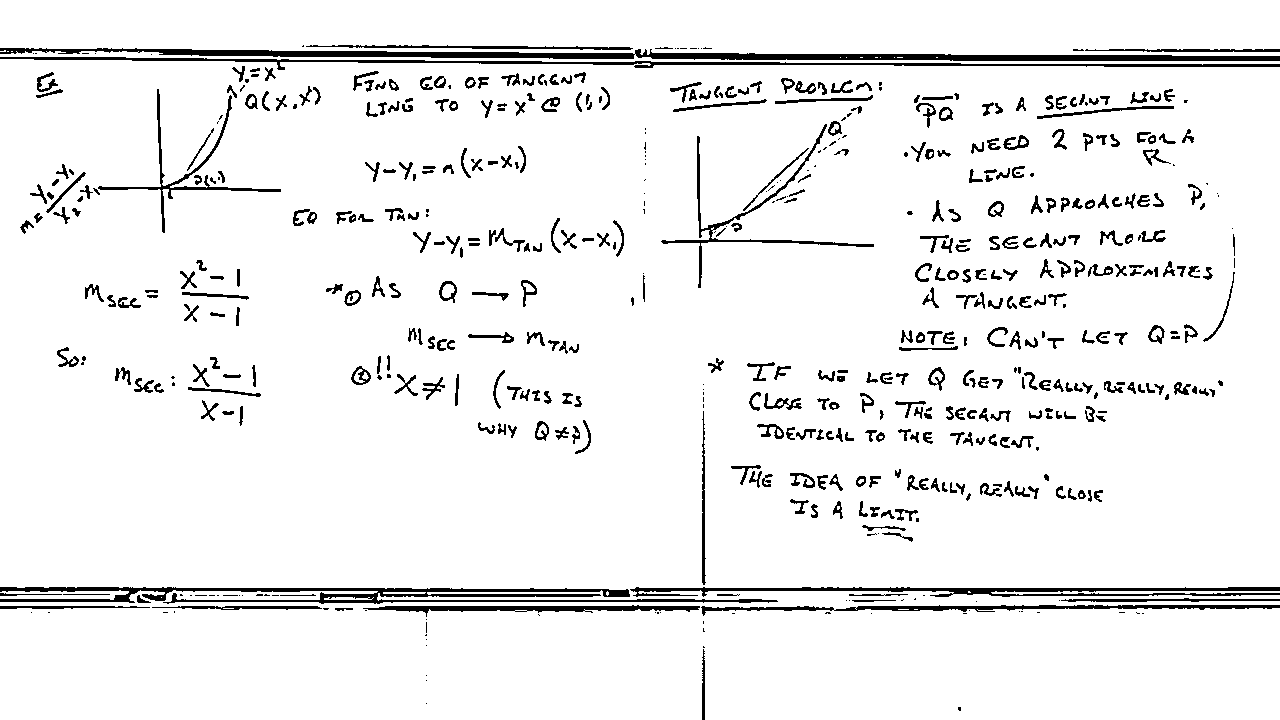 Ex
y=x²
Q(x,x²)
P(1,1)
m=y₂-y₁/x₂-x₁
FIND EQ. OF TANGENT
LINE TO y=x² @ (1,1)
y-y₁=m(x-x₁)
EQ FOR TAN:
y-y₁=m_TAN(x-x₁)
m_SEC = x²-1/x-1
* ① AS Q → P
m_SEC → m_TAN
SO: m_SEC : x²-1/x-1
② !! x≠1 (THIS IS
WHY Q≠P)
TANGENT PROBLEM:
Q
P
PQ IS A SECANT LINE.
• YOU NEED 2 PTS FOR A
LINE.
• AS Q APPROACHES P,
THE SECANT MORE
CLOSELY APPROXIMATES
A TANGENT.
NOTE: CAN'T LET Q=P
* IF WE LET Q GET "REALLY, REALLY, REALLY"
CLOSE TO P, THE SECANT WILL BE
IDENTICAL TO THE TANGENT.
THE IDEA OF "REALLY, REALLY" CLOSE
IS A LIMIT.